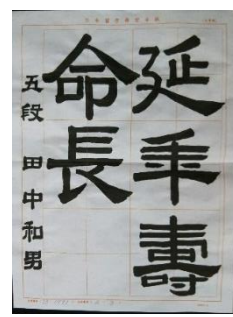 延年壽
命長
五段 田中和男